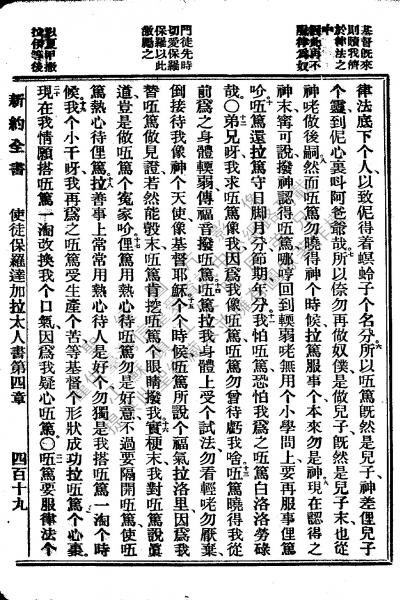 基督旣來
則贖我儕
於律法之
中
服律爲奴
門徒先時
切愛保羅
保羅以此
激勵之
律法底下个人以致伲得着螟蛉子个名分所以㕶篤旣然是兒子神差俚兒子
个靈到伲心裏呌阿爸爺哉所以倷勿再做奴僕是做兒子旣然是兒子末也從
神咾做後嗣然而㕶篤勿曉得神个時候拉篤服事个本來勿是神現在認得之
神末寗可說撥神認得㕶篤哪哼回到輭弱咾無用个小學問上要再服事俚篤
吤㕶篤還拉篤守日脚月分節期年分我怕㕶篤恐怕我爲之㕶篤白洛洛勞碌
哉○弟兄呀我求㕶篤像我因爲我像㕶篤㕶篤勿曾待虧我啥㕶篤曉得我從
前爲之身體輭弱傳福音撥㕶篤㕶篤拉我身體上受个試法勿看輕咾勿厭棄
倒接待我像神个天使像基督耶穌个个時候㕶篤所說个福氣拉洛里因爲我
替㕶篤做見證若然能彀末㕶篤肯挖㕶篤个眼睛撥我實梗末我對㕶篤說眞
道豈是做㕶篤个寃家吤俚篤用熱心待㕶篤勿是好意不過要隔開㕶篤使㕶
篤熱心待俚篤拉善事上常常用熱心待人是好个勿獨是我搭㕶篤一淘个時
候我个小干呀我再爲之㕶篤受生產个苦等基督个形狀成功拉㕶篤个心裏
現在我情願搭㕶篤一淘改換我个口氣因爲我疑心㕶篤○㕶篤要服律法个
新約全書　使徒保羅達加拉太人書第四章　四百十九